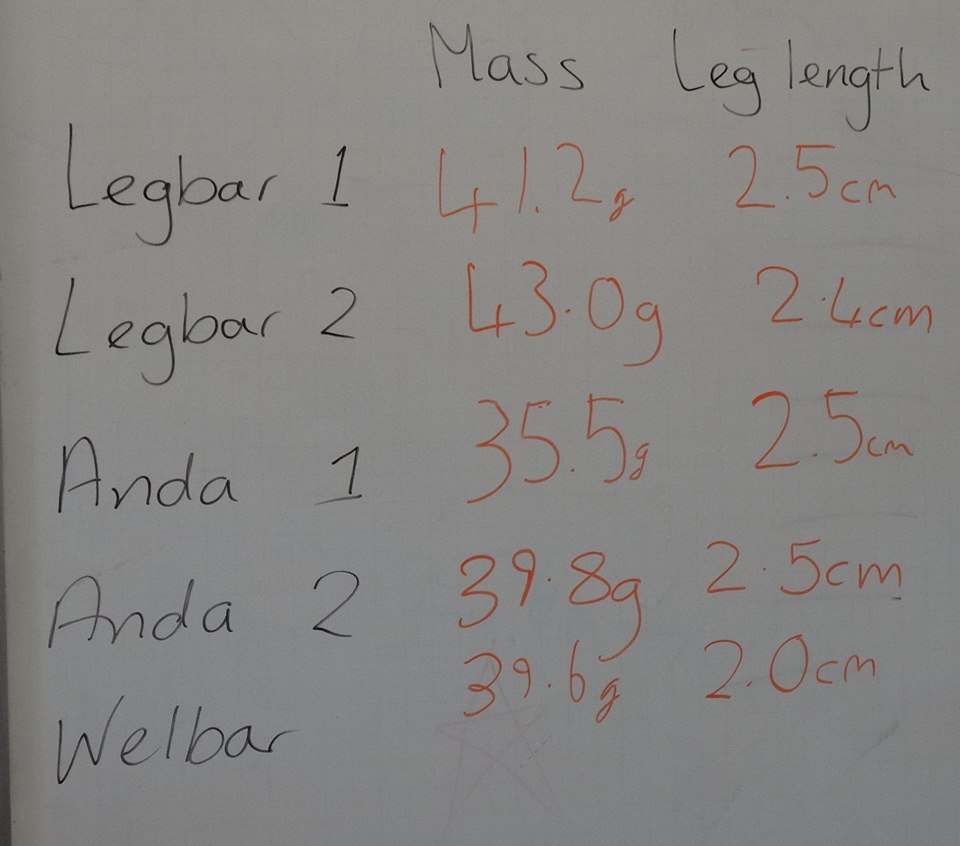 Mass Leg length
Legbar 1 41.2g 2.5cm
Legbar 2 43.0g 2.4cm
Anda 1 35.5g 2.5cm
Anda 2 39.8g 2.5cm
Welbar 39.6g 2.0cm